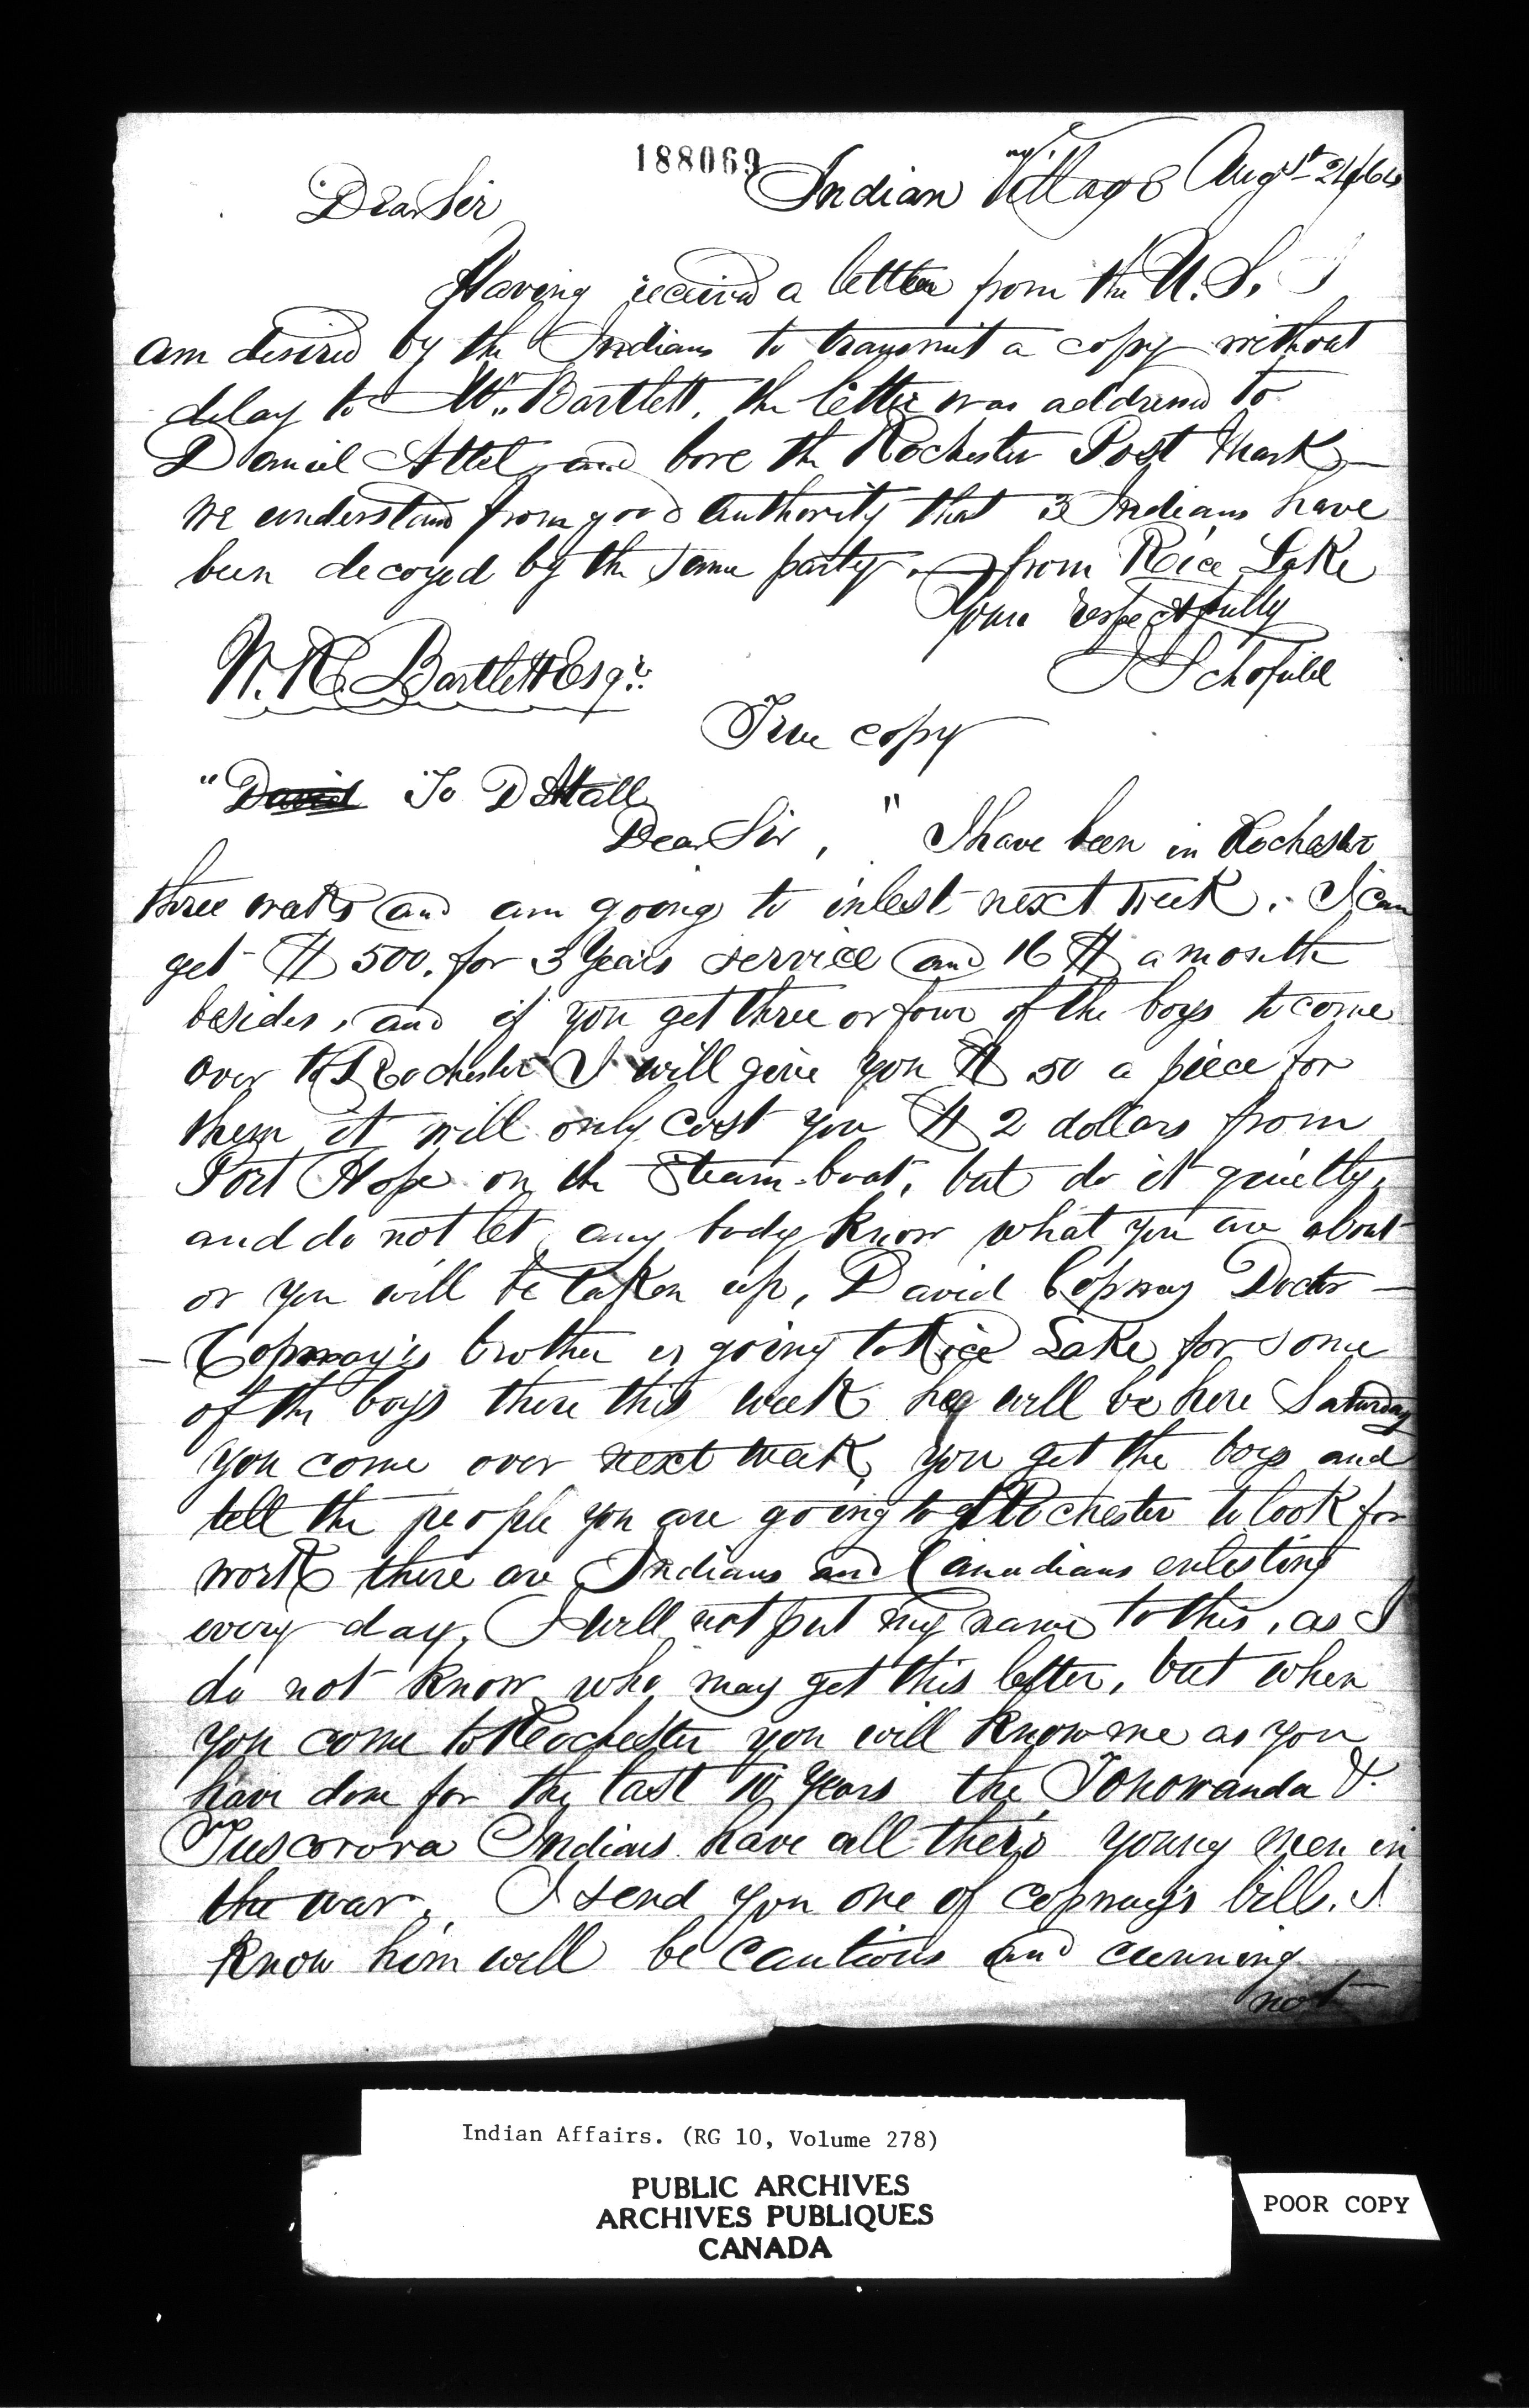 188069
Indian Village Augst 24/64
Dear Sir
Having received a letter from the U.S. I
am desired by the Indians to transmit a copy without
delay to Mr. Bartlett, the letter was addressed to
Daniel Attel, and bore the Rochester Post Mark,
we understand from good authority that 3 Indians have
been decoyed by the same party. from Rice Lake
Yours respectfully
J Schofield
W. R. Bartlett Esqr.
True copy
"David To D Attall
Dear Sir, " I have been in Rochester
three weeks and am going to inlest next week. I can
get $ 500. for 3 Years service and 16 $ a month
besides, and if you get three or four of the boys to come
over to Rochester I will give you $ 50 a piece for
them it will only cost you $ 2 dollars from
Port Hope on the Steam-boat, but do it quietly,
and do not let any body know what you are about
or you will be taken up, David Copway Doctor -
- Copway's brother is going to Rice Lake for some
of the boys there this week he will be here Saturday
you come over next week, you get the boys and
tell the people you are going to Rochester to look for
work there are Indians and Canadians enlesting
every day, I will not put my name to this, as I
do not know who may get this letter, but when
you come to Rochester you will know me as you
have done for the last 10 Years the Tonowanda &
Tuscorora Indians have all their young men in
the war. I send you one of copway's bills. I
know him well be cautious and cunning
not
Indian Affairs. (RG 10, Volume 278)
PUBLIC ARCHIVES
ARCHIVES PUBLIQUES
CANADA
POOR COPY